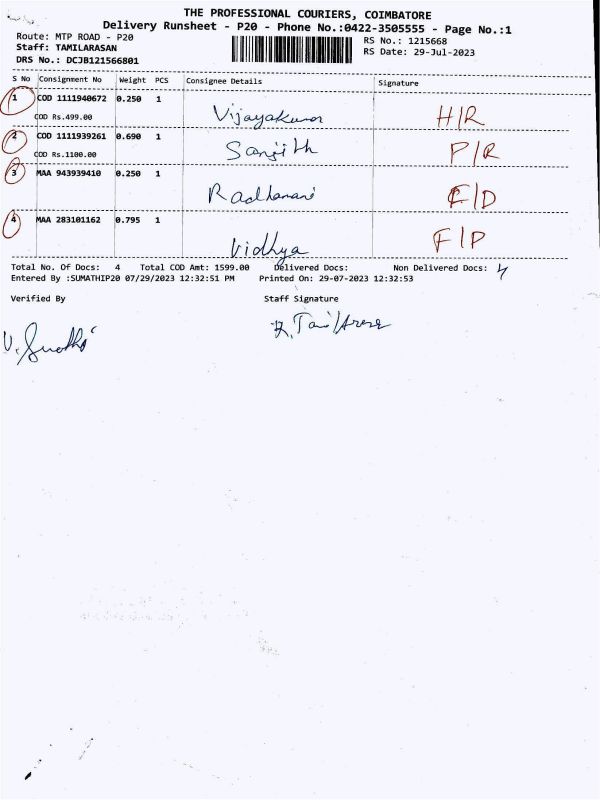 THE PROFESSIONAL COURIERS, COIMBATORE
Delivery Runsheet - P20 - Phone No.:0422-3505555 - Page No.:1
Route: MTP ROAD - P20
RS No.: 1215668
Staff: TAMILARASAN
RS Date: 29-Jul-2023
DRS No.: DCJB121566801
S No Consignment No Weight PCS Consignee Details Signature
1 COD 1111940672 0.250 1 Vijayakumar H/R
COD Rs.499.00
2 COD 1111939261 0.690 1 Sanjith P/R
COD Rs.1100.00
3 MAA 943939410 0.250 1 Radhamani /D
4 MAA 283101162 0.795 1 Vidhya
Total No. Of Docs: 4 Total COD Amt: 1599.00 Delivered Docs: Non Delivered Docs: 4
Entered By :SUMATHIP20 07/29/2023 12:32:51 PM Printed On: 29-07-2023 12:32:53
Verified By Staff Signature